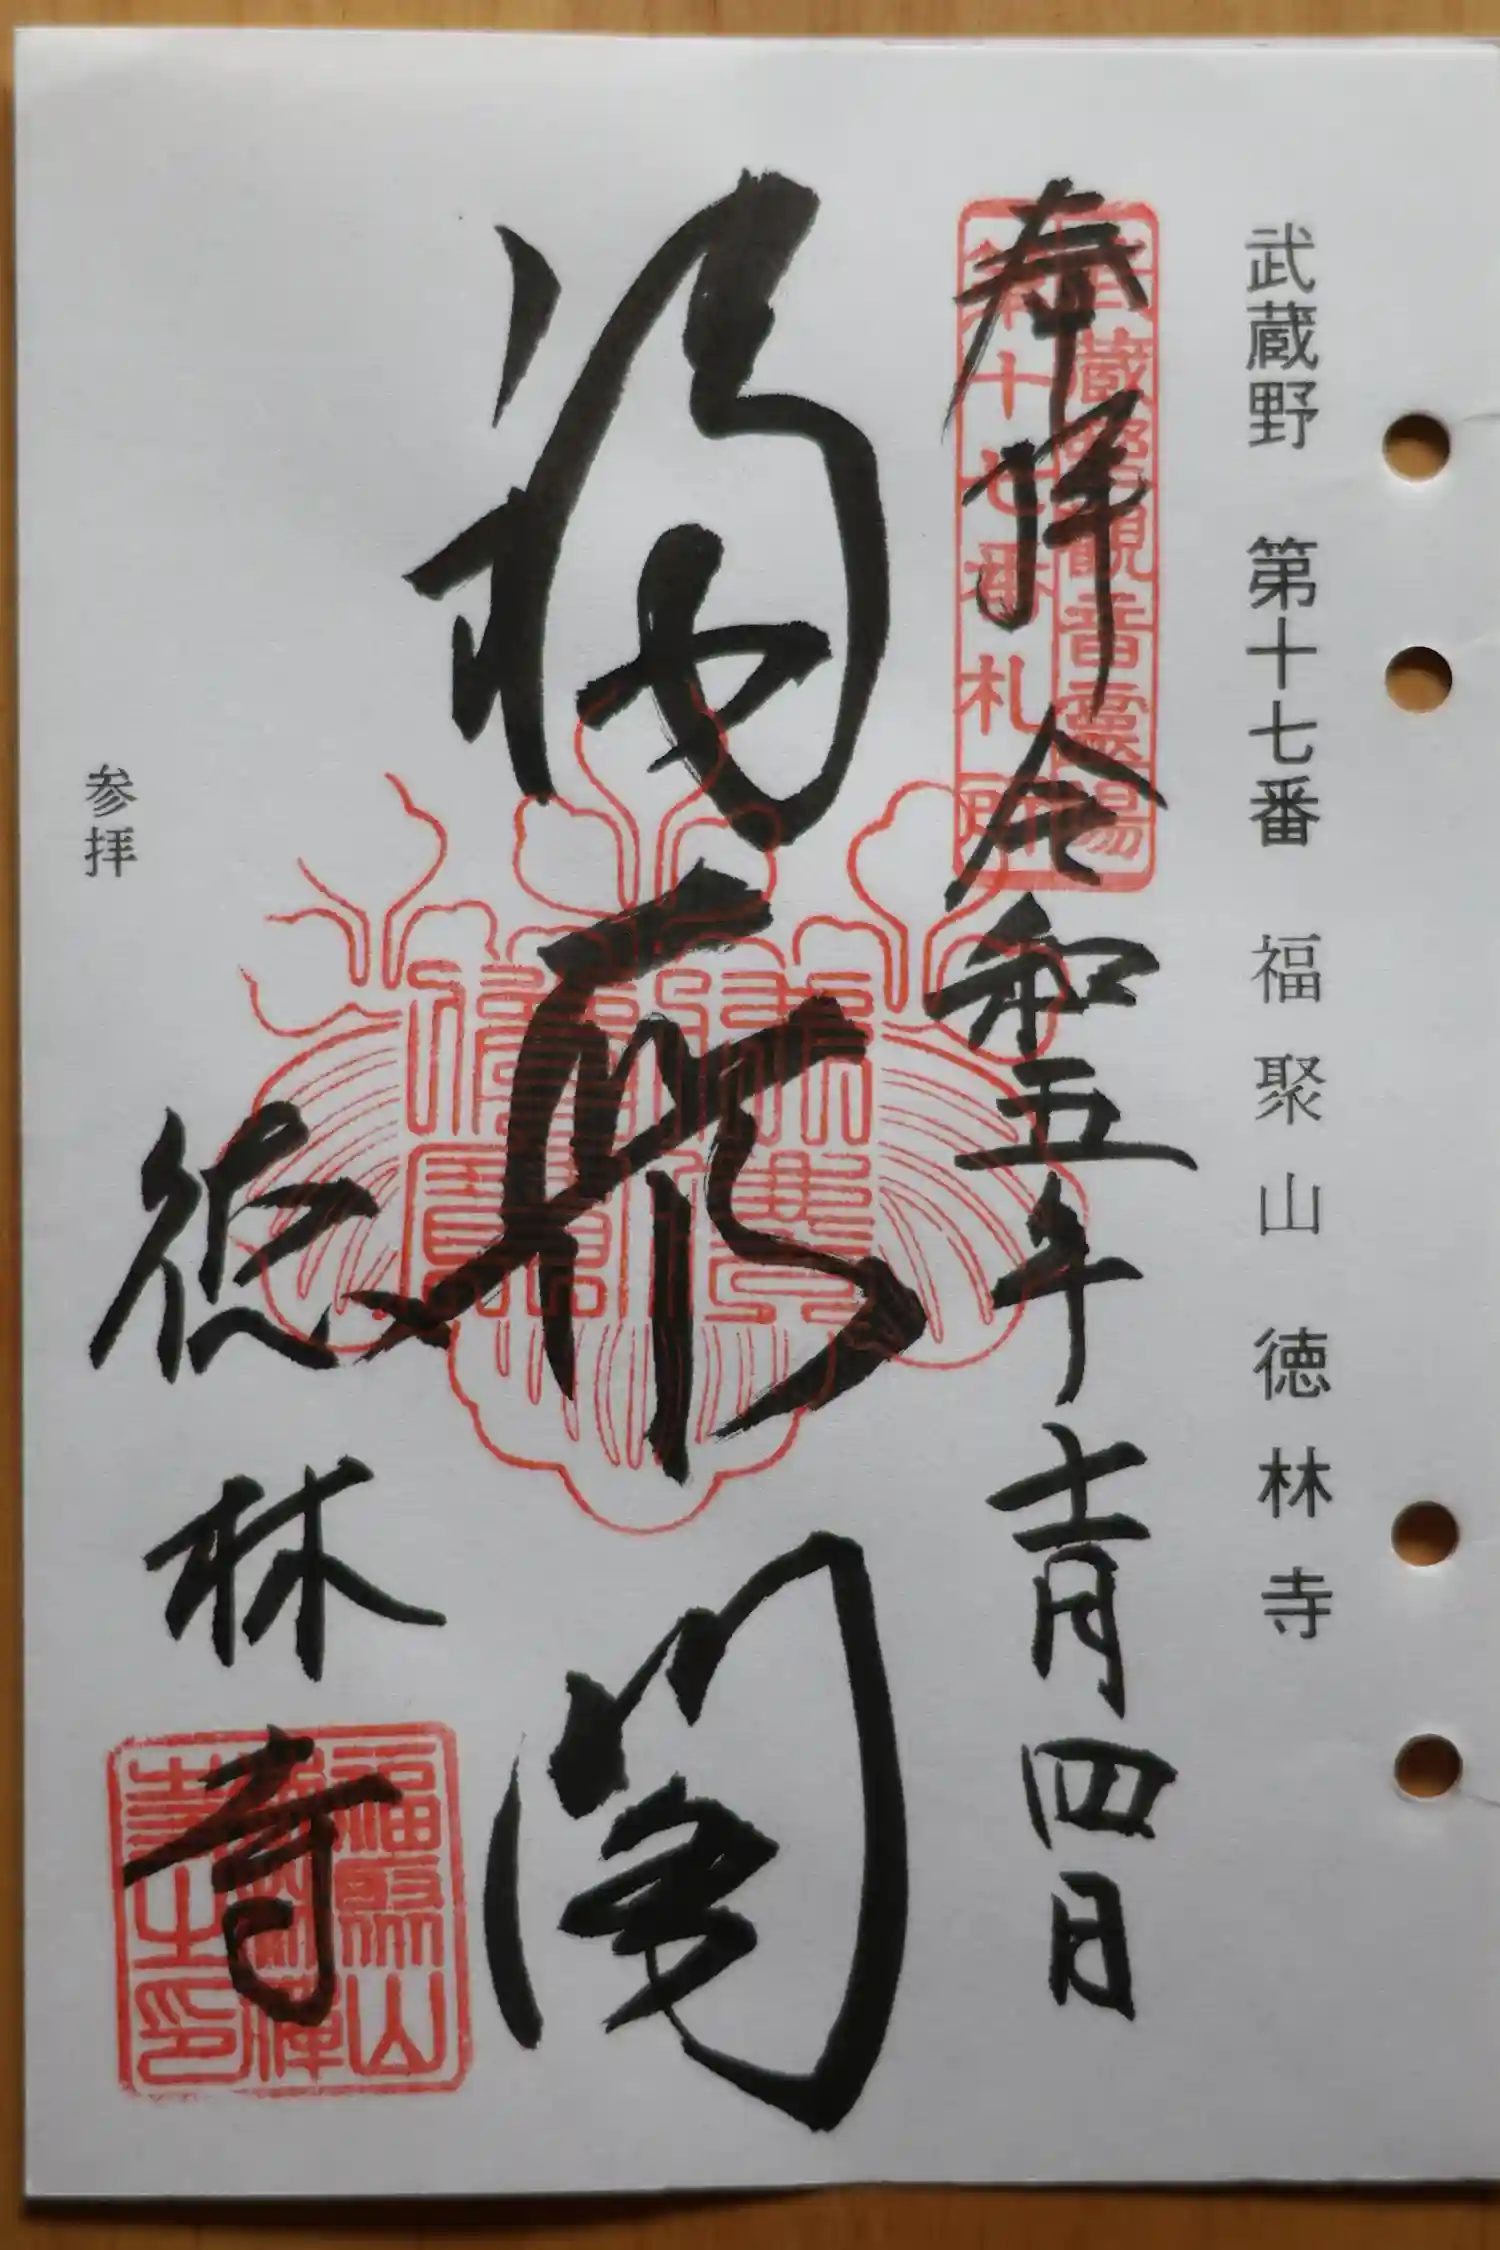 武蔵野 第十七番 福聚山 徳林寺
武蔵野観音霊場
第十七番札所
奉拝 令和五年十一月四日
福聚閣
徳林寺
福聚山
参拝